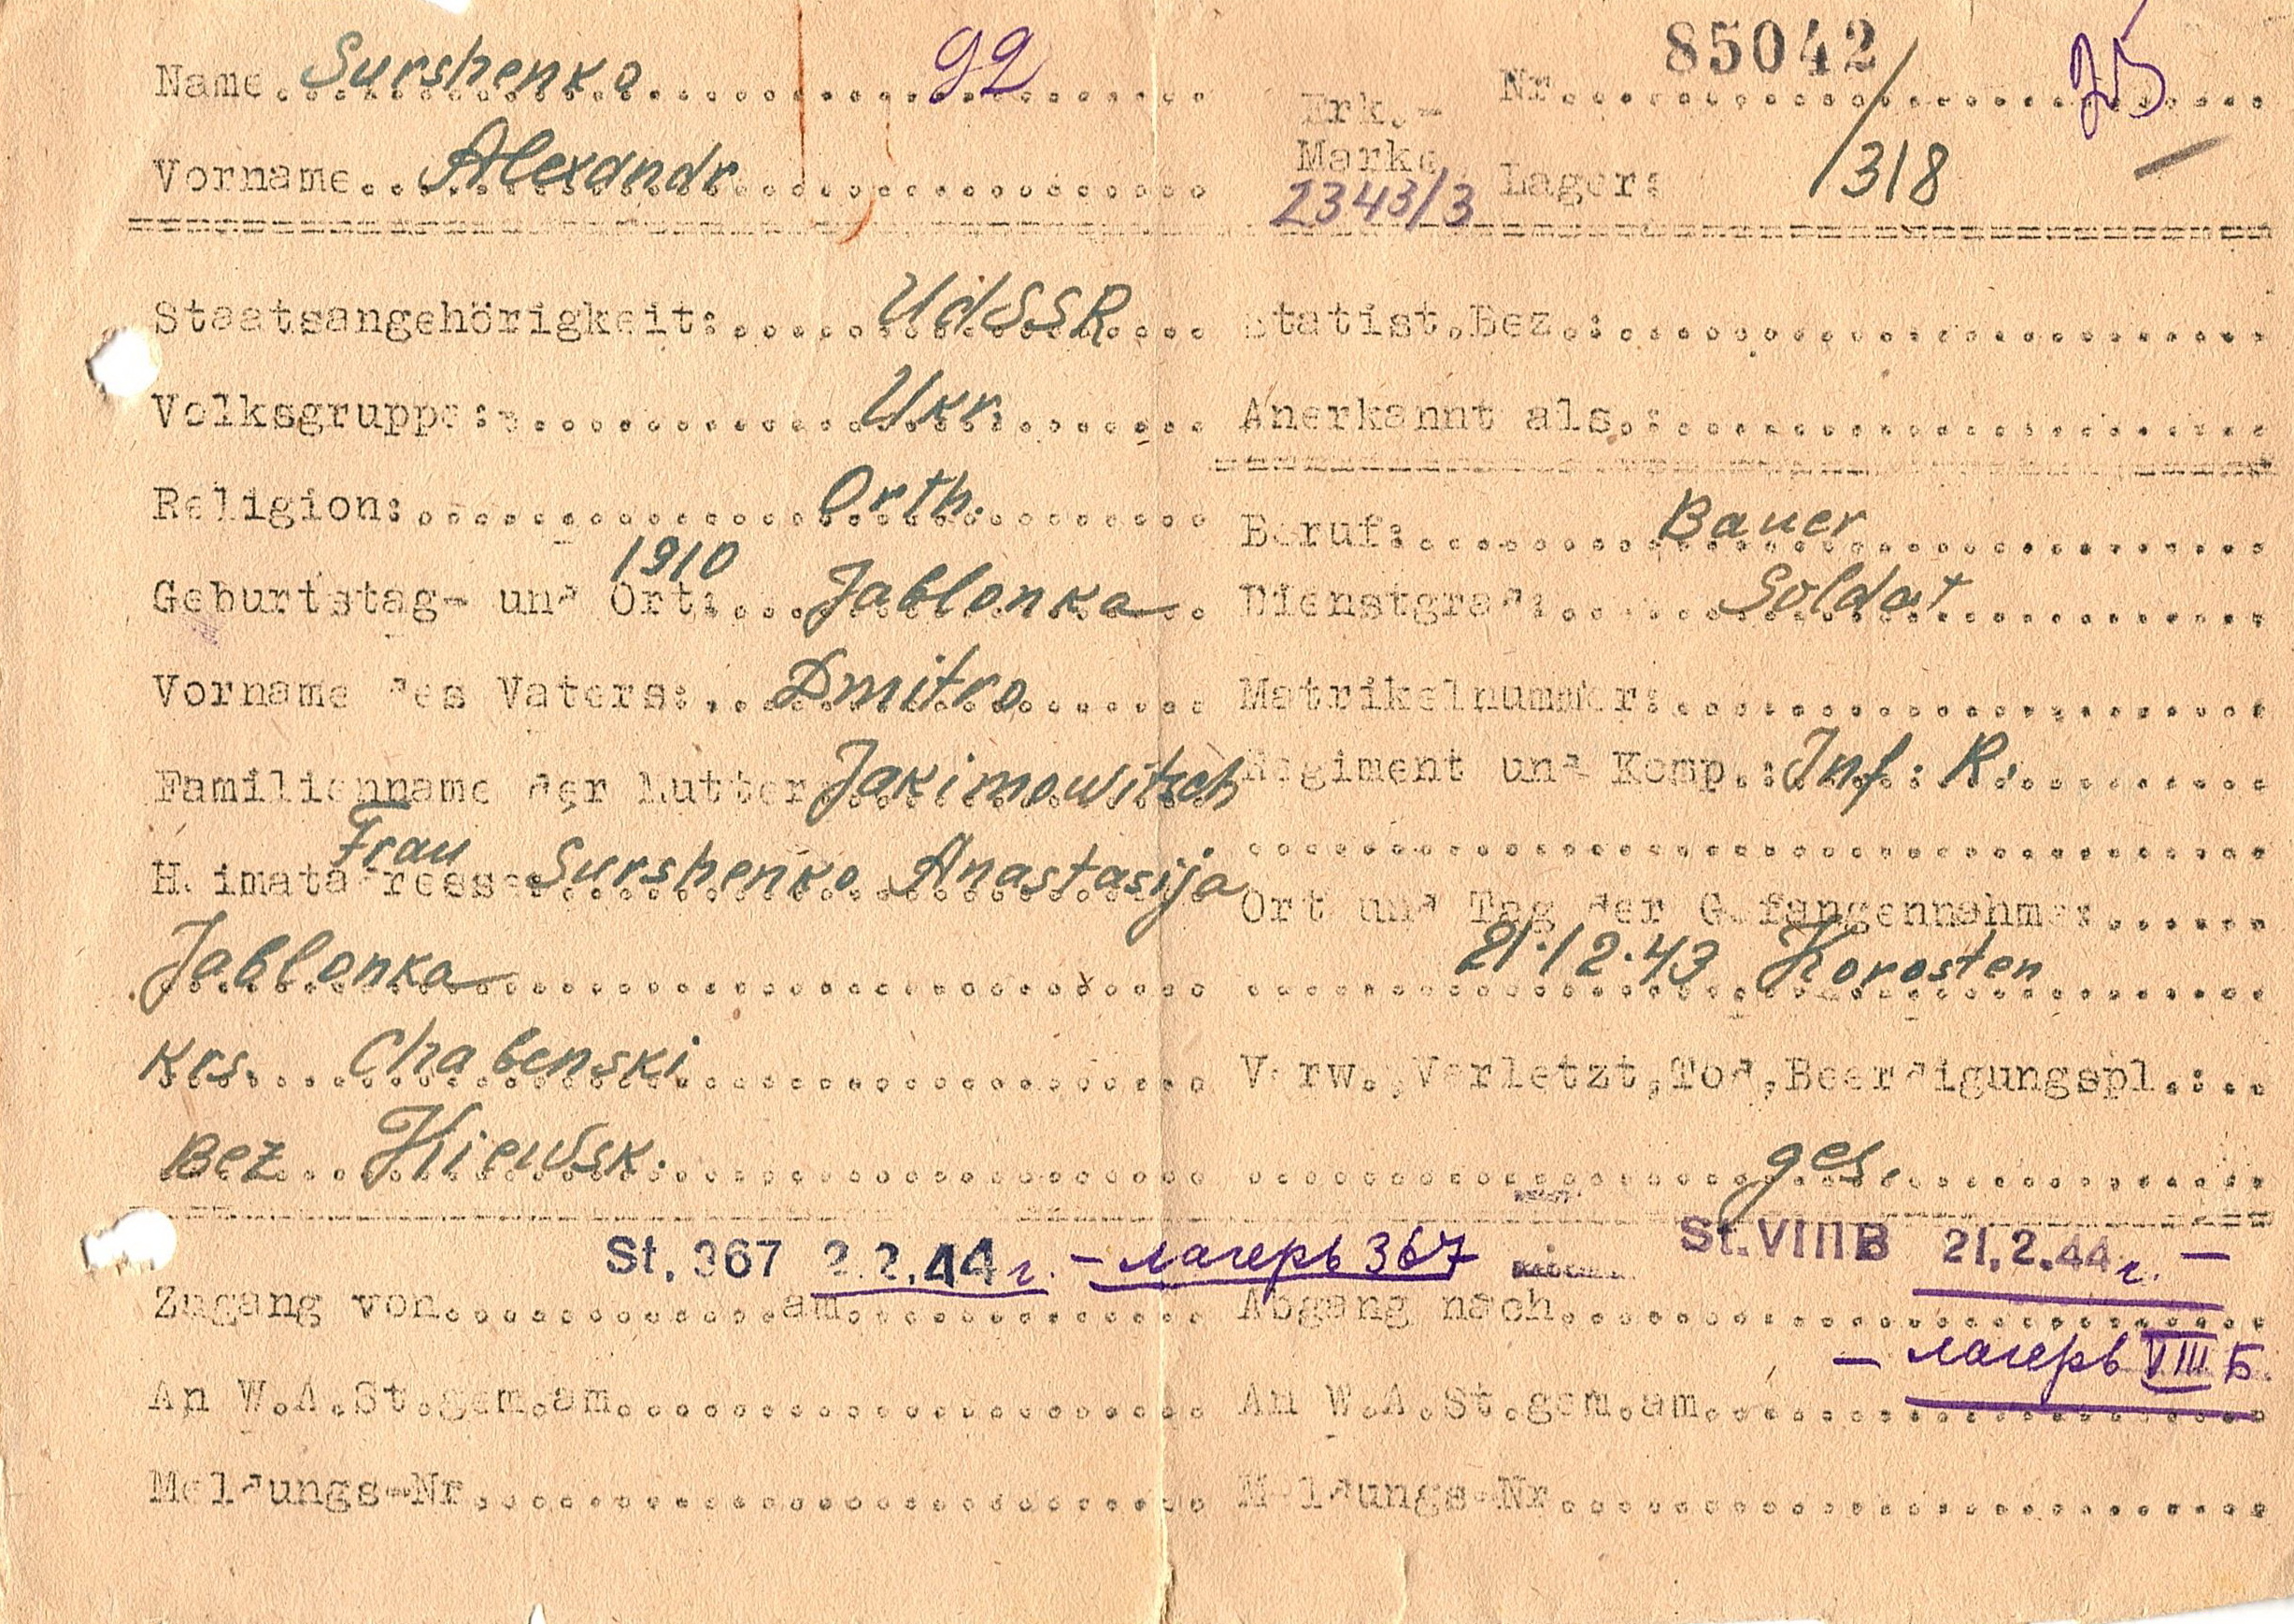 Name Surshenko 92
Vorname Alexandr
Nr. 85042
Erk.-
Marke
2343/3
Lager: /318
Staatsangehörigkeit: UdSSR
Statist.Bez.:
Volksgruppe: Ukr.
Anerkannt als.:
Religion: Orth.
Beruf: Bauer
1910
Geburtstag- und Ort: Jablonka
Dienstgrad: Soldat
Vorname des Vaters: Dmitro
Matrikelnummer:
Familienname der Mutter Jakimowitsch
Regiment und Komp.: Inf. R.
Frau
Heimatadresse Surshenko Anastasija
Ort und Tag der Gefangennahme:
Jablonka
21.12.43 Korosten
Krs. Chabenski
Verw.,Verletzt,Tod,Beerdigungspl.:
Bez. Kiewsk.
ges.
St. 367 2.2.44 г. - лагерь 367
St. VIII B 21.2.44 г. -
Zugang von am
Abgang nach
- лагерь VIII Б.
An W.A.St.gem.am
An W.A.St.gem.am
Meldungs-Nr.
Meldungs-Nr.